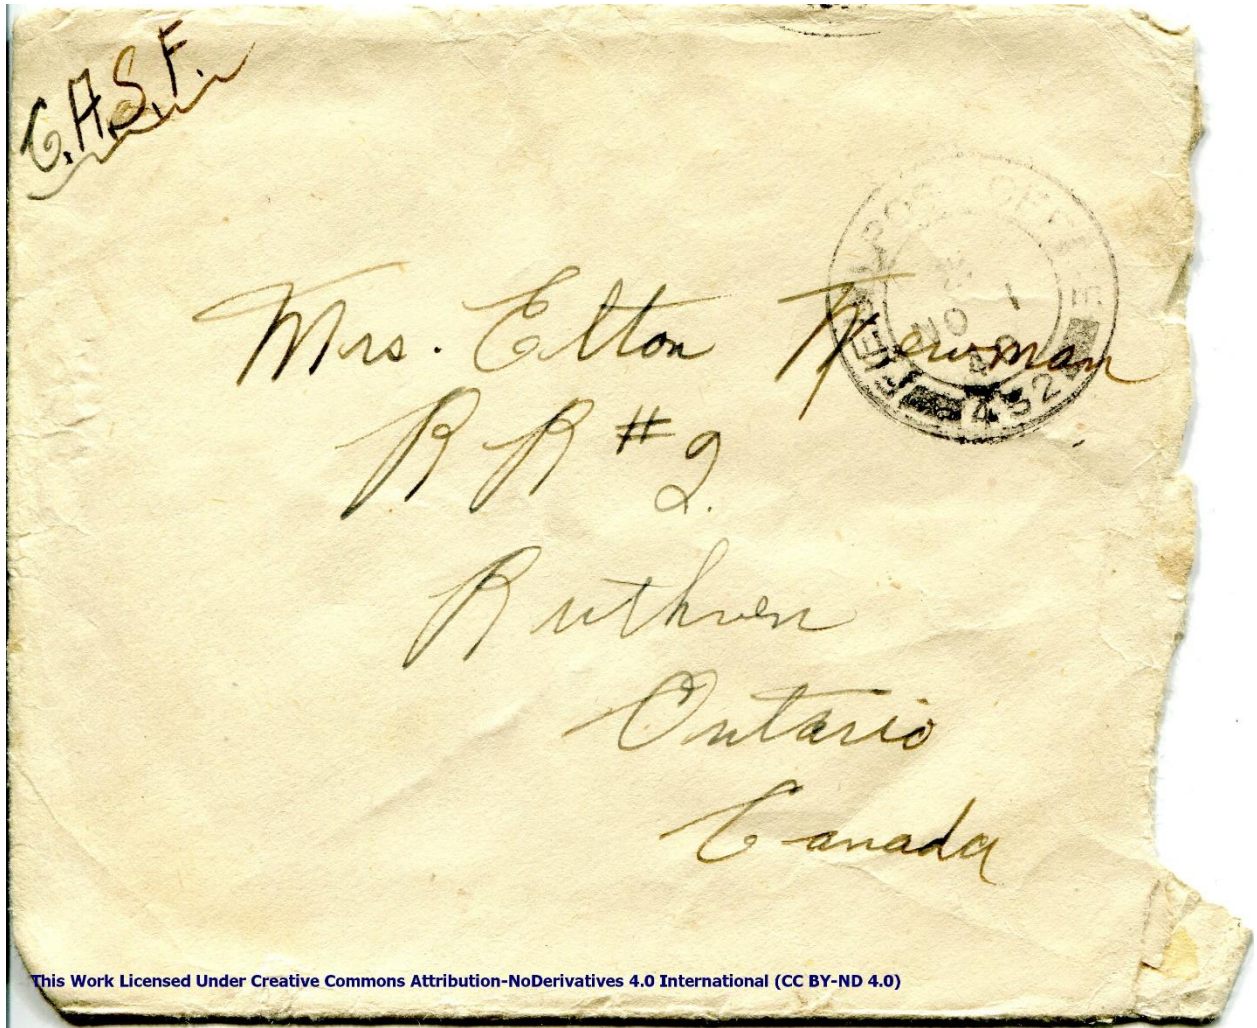 C.A.S.F.
FIELD POST OFFICE
NO 1
40
452
Mrs. Elton Newman
RR #2.
Ruthven
Ontario
Canada
This Work Licensed Under Creative Commons Attribution-NoDerivatives 4.0 International (CC BY-ND 4.0)